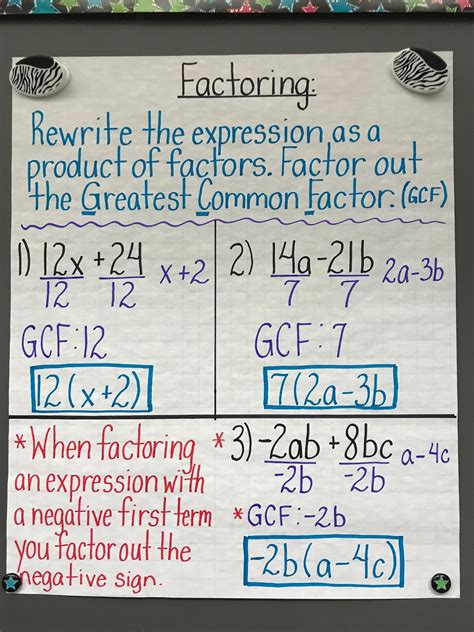 Factoring:
Rewrite the expression as a
product of factors. Factor out
the Greatest Common Factor. (GCF)
1) 12x + 24 x+2
12 12
GCF: 12
12(x+2)
2) 14a - 21b 2a-3b
7 7
GCF: 7
7(2a-3b
*When factoring
an expression with
a negative first term
you factor out the
negative sign.
*3) -2ab + 8bc a-4c
-2b -2b
*GCF: -2b
-2b(a-4c)